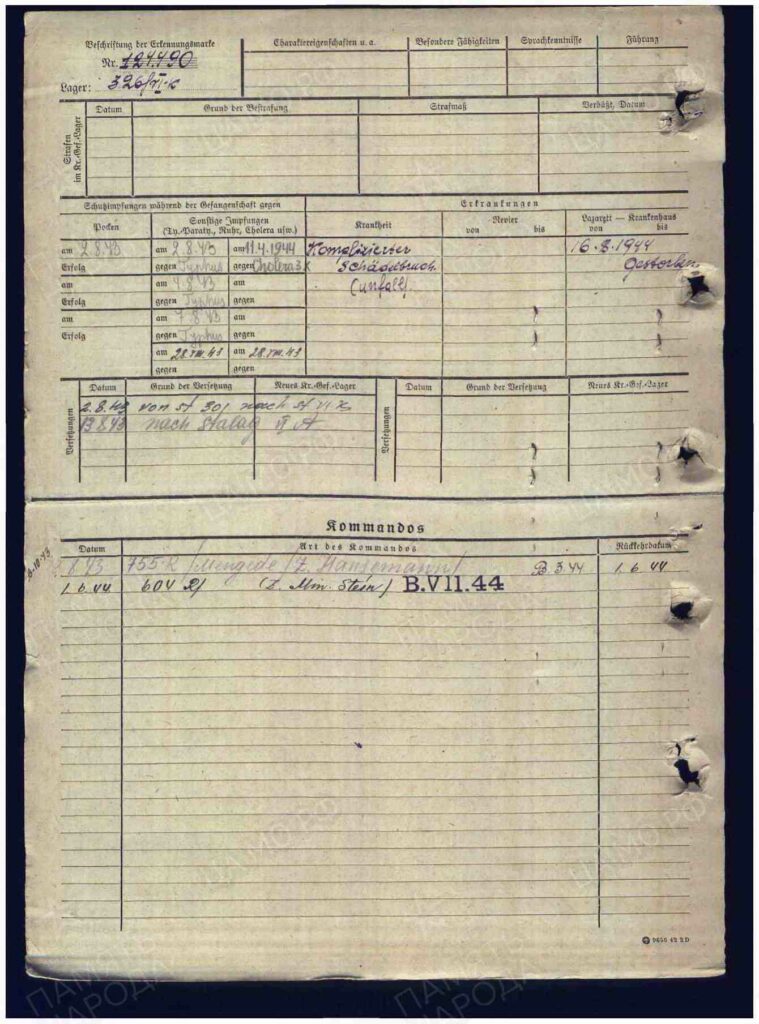 Beschriftung der Erkennungsmarke
Nr. 124490
Lager: 326/VI-K
Charaktereigenschaften u. a.
Besondere Fähigkeiten
Sprachkenntnisse
Führung
Strafen im Kr.-Gef.-Lager
Datum
Grund der Bestrafung
Strafmaß
Verbüßt, Datum
Schutzimpfungen während der Gefangenschaft gegen
Erkrankungen
Pocken
Sonstige Impfungen
(Ty.-Paraty., Ruhr, Cholera usw.)
Krankheit
Revier
von bis
Lazarett — Krankenhaus
von bis
am 2.8.43 am 2.8.43 am 11.4.1944 Komplizierter 16.8.1944
Erfolg gegen Typhus gegen Cholera 3x Schädelbruch. Gestorben
am am 4.8.43 am (Unfall).
Erfolg gegen Typhus gegen
am am 7.8.43 am
Erfolg gegen Typhus gegen
am 28.VIII.43 am 28.VIII.43
gegen gegen
Versetzungen
Datum Grund der Versetzung Neues Kr.-Gef.-Lager
Versetzungen
Datum Grund der Versetzung Neues Kr.-Gef.-Lager
2.8.43 von St 301 nach St VI K
13.8.43 nach Stalag VI A
Kommandos
Datum Art des Kommandos Rückkehrdatum
8.43 755-R /Mengede /Z. Hansemann/ B 3.44 1.6.44
1.6.44 604 R/ (Z. Min. Stein) B.VII.44
9650 42 2D
ПАМО.РФ
ПАМО.РФ
ПАМО.РФ
НАРОДА
НАРОДА